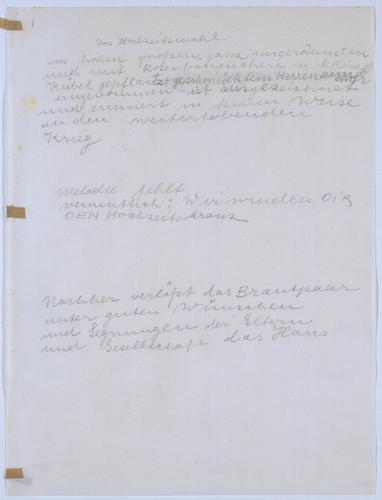 Das Hochzeitsmahl
im hohen großen, ganz ausgeräumten
und mit Rosenbäumchen in kleine
Kübel gepflanzt geschmückten Herrenzimmer
eingenommen ist ausgezeichnet
und erinnert in keiner Weise
an den weitertobenden
Krieg
Melodie fehlt
vermutlich: Wir winden DIR
DEN Hochzeitskranz
Nachher verläßt das Brautpaar
unter guten Wünschen
und Segnungen der Eltern
und Gesellschaft das Haus